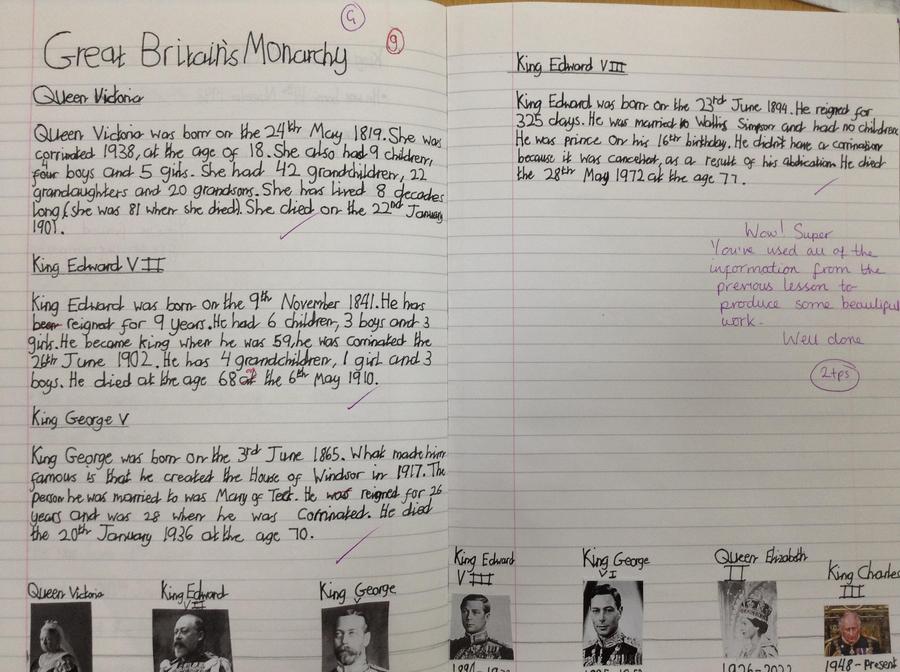 G
9
Great Britain's Monarchy
Queen Victoria
Queen Victoria was born on the 24th May 1819. She was
corrinated 1938, at the age of 18. She also had 9 children,
four boys and 5 girls. She had 42 grandchildren, 22
grandaughters and 20 grandsons. She has lived 8 decades
long (she was 81 when she died). She died on the 22nd January
1901.
King Edward VII
King Edward was born on the 9th November 1841. He has
been reigned for 9 years. He had 6 children, 3 boys and 3
girls. He became king when he was 59, he was corrinated the
26th June 1902. He has 4 grandchildren, 1 girl and 3
boys. He died at the age 68 the 6th May 1910.
King George V
King George was born on the 3rd June 1865. What made him
famous is that he created the House of Windsor in 1917. The
person he was married to was Mary of Teck. He was reigned for 26
years and was 28 when he was Corrinated. He died
the 20th January 1936 at the age 70.
Queen Victoria
King Edward
VII
King George
V
King Edward VIII
King Edward was born on the 23rd June 1894. He reigned for
325 days. He was married to Wallis Simpson and had no children.
He was prince on his 16th birthday. He didn't have a corrination
because it was cancelled, as a result of his abdication. He died
the 28th May 1972 at the age 77.
Wow! Super
You've used all of the
information from the
previous lesson to
produce some beautiful
work.
Well done
2tps
King Edward
VIII
King George
VI
Queen Elizabeth
II
King Charles
III
1926-2022
1948-Present